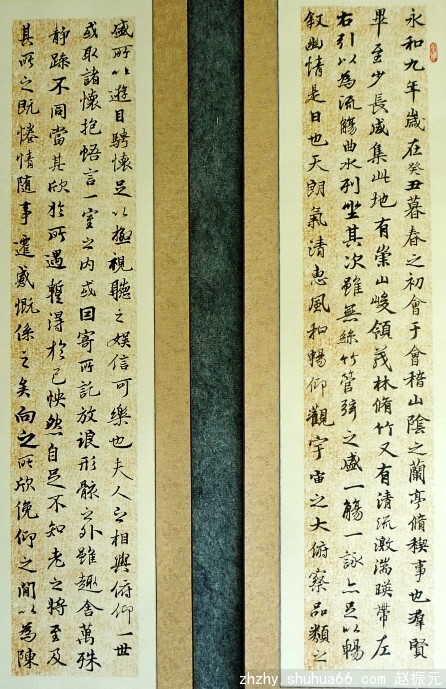 永和九年歲在癸丑暮春之初會于會稽山陰之蘭亭脩稧事也羣賢
畢至少長咸集此地有崇山峻領茂林脩竹又有清流激湍暎帶左
右引以為流觴曲水列坐其次雖無絲竹管弦之盛一觴一詠亦足以暢
叙幽情是日也天朗氣清惠風和暢仰觀宇宙之大俯察品類之
盛所以遊目騁懷足以極視聽之娛信可樂也夫人之相與俯仰一世
或取諸懷抱悟言一室之內或因寄所託放浪形骸之外雖趣舍萬殊
靜躁不同當其欣於所遇暫得於己怏然自足不知老之將至及
其所之既惓情隨事遷感慨係之矣向之所欣俛仰之閒以為陳
zhzhy.shuhua66.com 赵振元